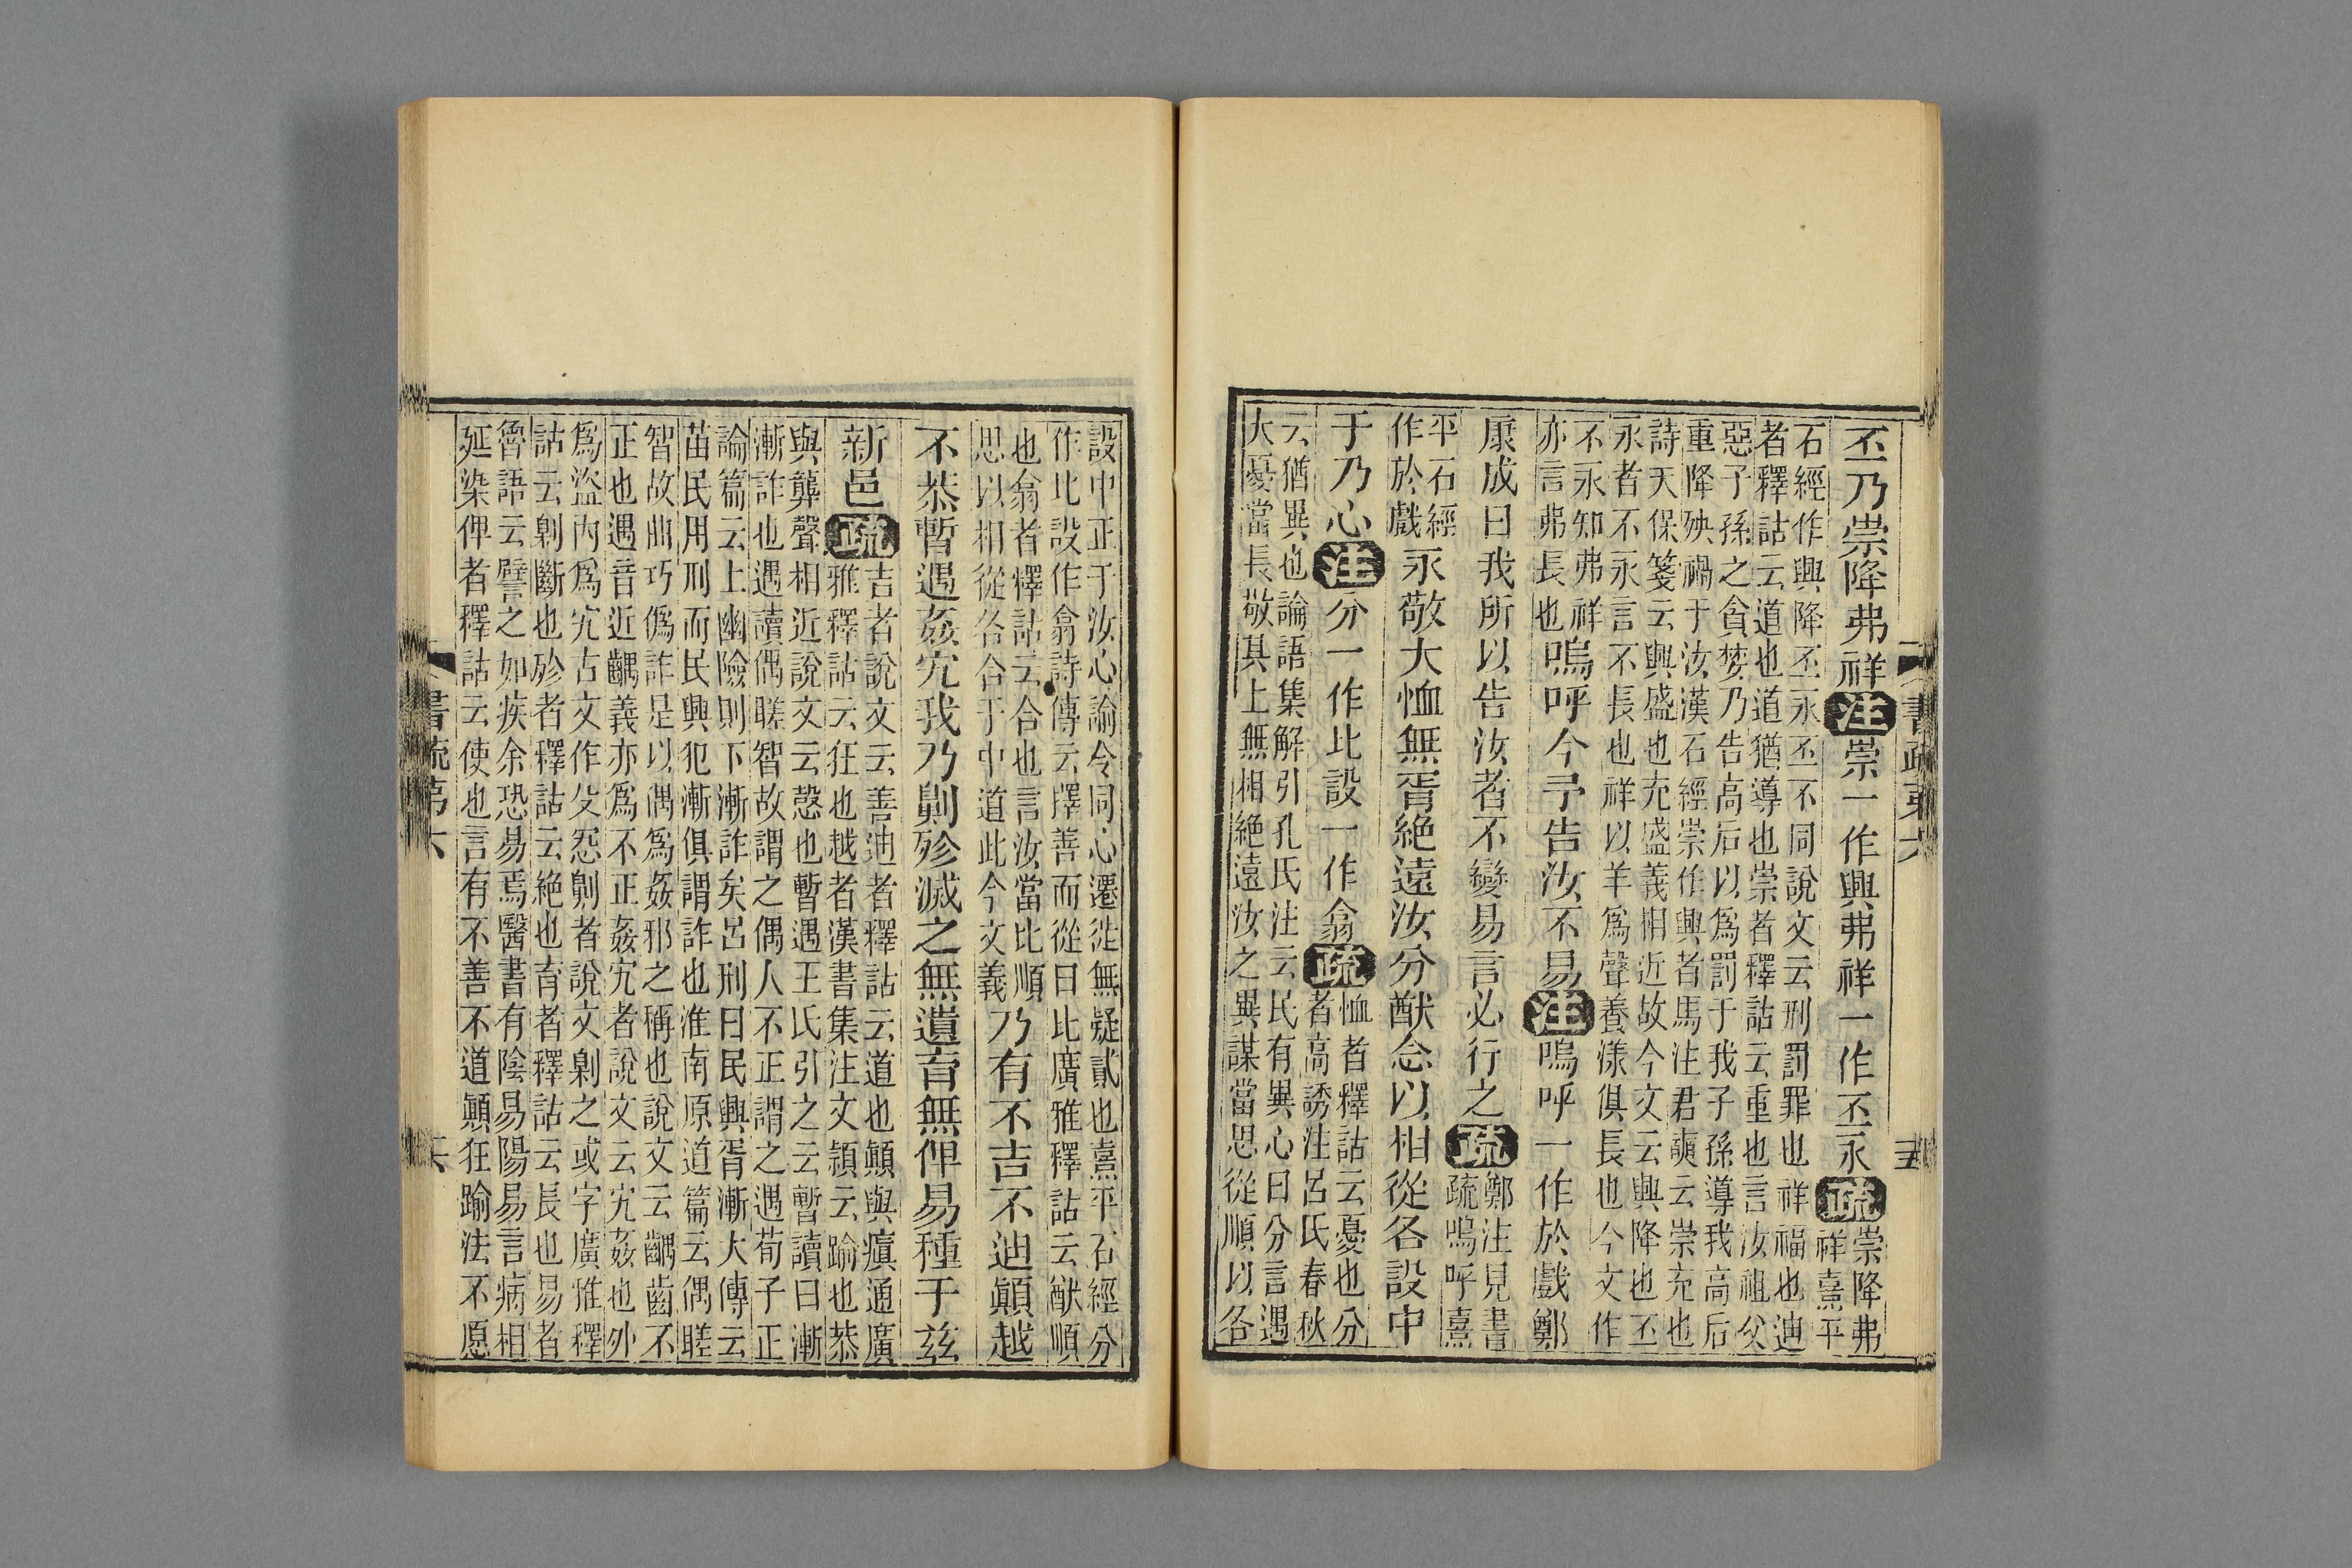 丕乃崇降弗祥注崇一作興弗祥一作丕永疏崇降弗
祥熹平
石經作興降丕永丕不同說文云刑罰罪也祥福也迪
者釋詁云道也道猶導也崇者釋詁云重也言汝祖父
惡子孫之貪婪乃告高后以爲罰于我子孫導我高后
重降殃禍于汝漢石經崇作興者馬注君奭云崇充也
詩天保箋云興盛也充盛義相近故今文云興降也丕
永者不永言不長也祥以羊爲聲養漾俱長也今文作
不永知弗祥
亦言弗長也
嗚呼今予告汝不易注嗚呼一作於戲鄭
康成曰我所以告汝者不變易言必行之疏鄭注見書
疏嗚呼熹
平石經
作於戲
永敬大恤無胥絕遠汝分猷念以相從各設中
于乃心注分一作比設一作翕疏恤者釋詁云憂也分
者高誘注呂氏春秋
云猶異也論語集解引孔氏注云民有異心曰分言遇
大憂當長敬其上無相絕遠汝之異謀當思從順以各
書疏第六
設中正于汝心諭令同心遷徙無疑貳也熹平石經分
作比設作翕詩傳云擇善而從曰比廣雅釋詁云猷順
也翕者釋詁云合也言汝當比順
思以相從各合于中道此今文義
乃有不吉不迪顛越
不恭暫遇姦宄我乃劓殄滅之無遺育無俾易種于茲
新邑疏吉者說文云善迪者釋詁云道也顛與瘨通廣
雅釋詁云狂也越者漢書集注文穎云踰也恭
與龔聲相近說文云愨也暫遇王氏引之云暫讀曰漸
漸詐也遇讀偶䁟智故謂之偶人不正謂之遇荀子正
論篇云上幽險則下漸詐矣呂刑曰民興胥漸大傳云
苗民用刑而民興犯漸俱謂詐也淮南原道篇云偶䁟
智故曲巧僞詐是以偶爲姦邪之稱也說文云齵齒不
正也遇音近齵義亦爲不正姦宄者說文云宄姦也外
爲盜內爲宄古文作㕝怨劓者說文劓之或字廣雅釋
詁云劓斷也殄者釋詁云絕也育者釋詁云長也易者
魯語云譬之如疾余恐易焉醫書有陰易陽易言病相
延染俾者釋詁云使也言有不善不道顛狂踰法不愿
書疏第六